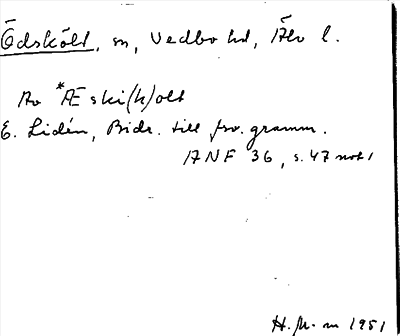 Ödskölt, sn, Vedbo hd, Älv l.
Av *Æski(h)olt
E. Lidén, Bidr. till fsv. gramm.
ANF 36, s. 47 not 1
H. M-m 1951